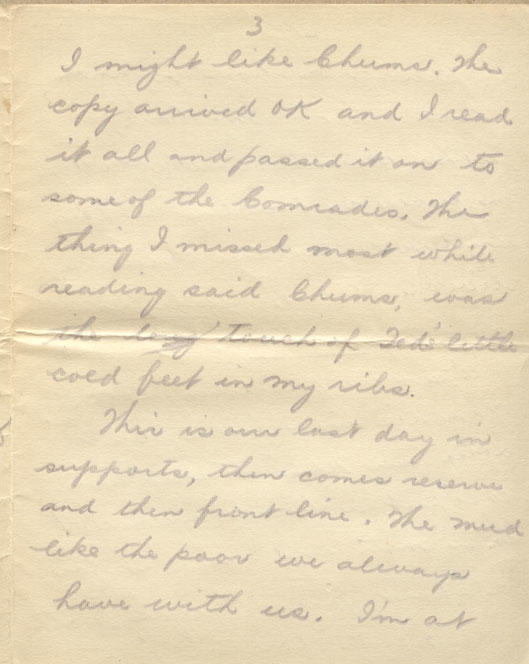 3
I might like Chums. The
copy arrived OK and I read
it all and passed it on to
some of the Comrades. The
thing I missed most while
reading said Chums, was
the touch of Ted's little
cold feet in my ribs.
This is our last day in
supports, then comes reserve
and then front line. The mud
like the poor we always
have with us. I'm at